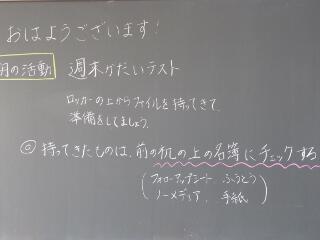 おはようございます!
朝の活動 週末かだいテスト
ロッカーの上からファイルを持ってきて、
準備をしてましょう。
◎ 持ってきたものは、前の机の上の名簿にチェックする
(フォローアップシート、ふうとう
ノーメディア、手紙)